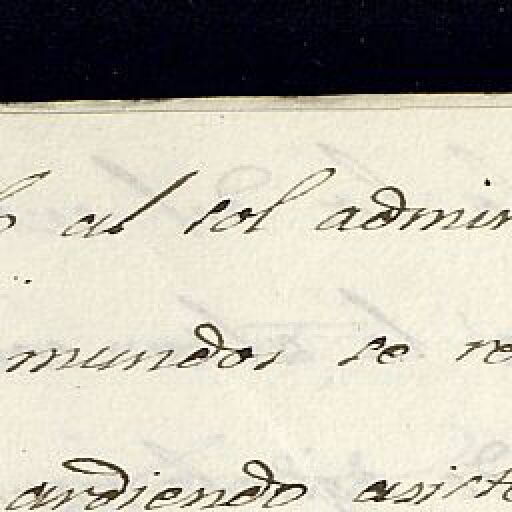 al sol admir
mundos se re
ardiendo asiste